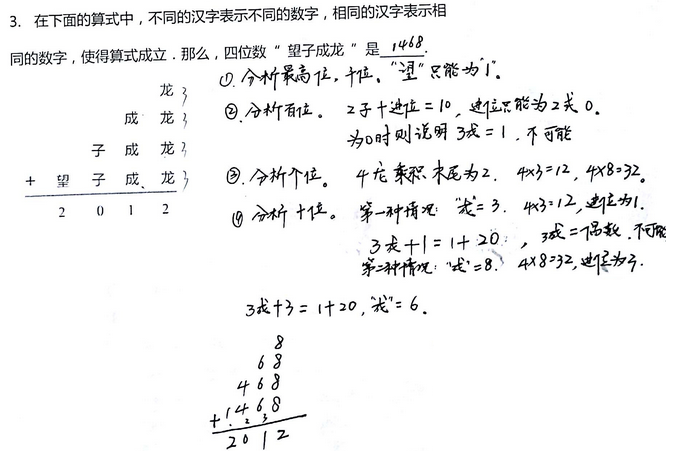 3. 在下面的算式中，不同的汉字表示不同的数字，相同的汉字表示相
同的数字，使得算式成立．那么，四位数“望子成龙”是 1468.
①. 分析最高位，千位。"望"只能为"1"。
龙
②. 分析百位。 2子+进位=10，进位只能为2或0。
成 龙
为0时则说明 3成=1，不可能
子 成 龙
③. 分析个位。 4龙乘积末尾为2. 4×3=12, 4×8=32。
+ 望 子 成 龙
2 0 1 2
④ 分析十位。 第一种情况: "龙"=3. 4×3=12, 进位为1.
3成+1=1+20, 3成=偶数. 不可能
第二种情况: "龙"=8. 4×8=32, 进位为3.
3成+3=1+20, "成"=6.
8
68
468
+1468
2 3
2012